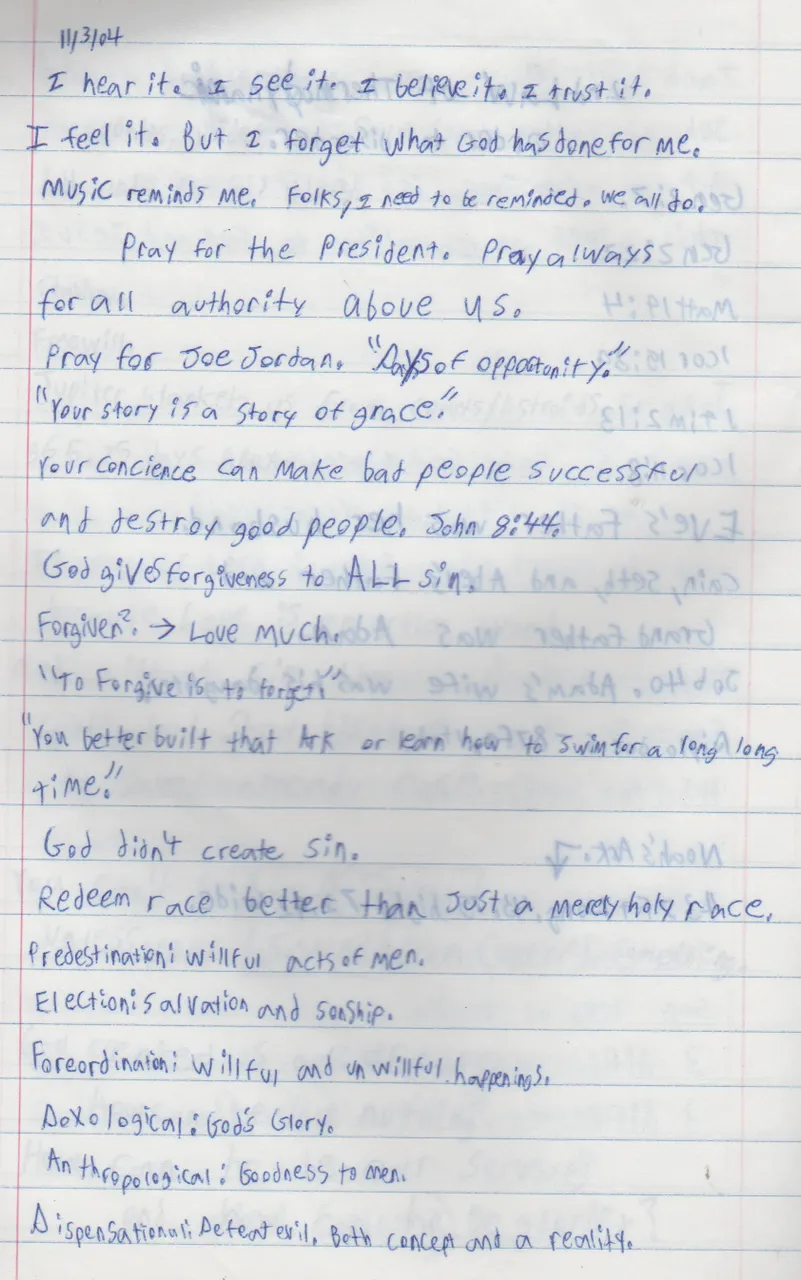 11/3/04
I hear it. I see it. I believe it. I trust it.
I feel it. But I forget what God has done for me.
Music reminds me. Folks, I need to be reminded. we all do.
Pray for the President. Pray always
for all authority above us.
Pray for Joe Jordan. "Days of oppotunity."
"Your story is a story of grace."
Your concience can make bad people successful
and destroy good people. John 8:44.
God gives forgiveness to ALL sin.
Forgiven? → Love much.
"To Forgive is to forget."
"You better built that Ark or learn how to swim for a long long
time."
God didn't create sin.
Redeem race better than Just a merely holy race.
Predestination: willful acts of men.
Election: salvation and sonship.
Foreordination: willful and unwillful happenings.
Doxological: God's Glory.
Anthropological: Goodness to men.
Dispensational: Defeat evil. Both concept and a reality.